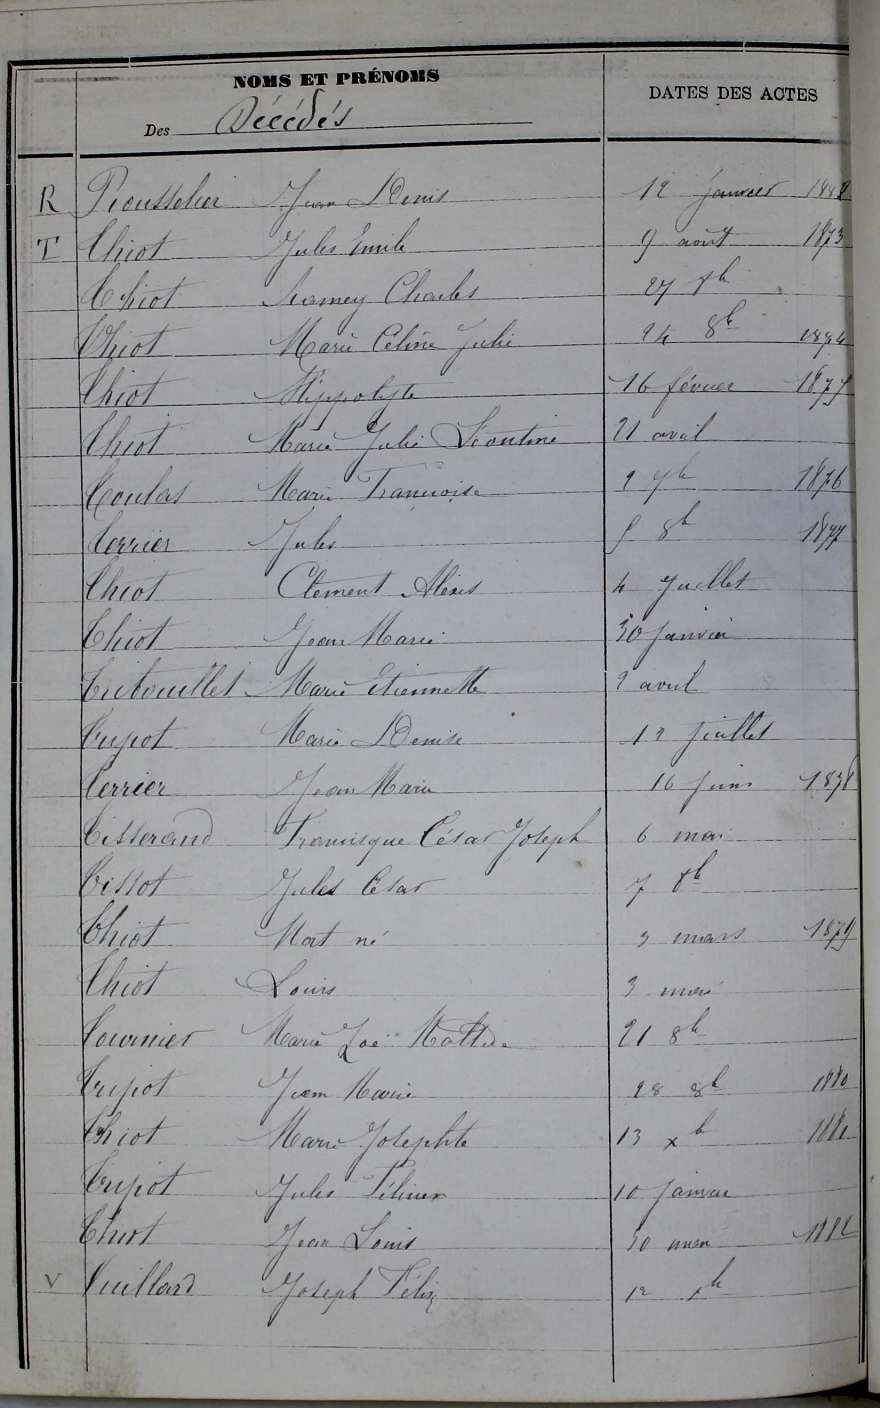 NOMS ET PRÉNOMS
DATES DES ACTES
Des Décédés
R Rousselier Jean Denis 12 janvier 1882
T Thiot Jules Emile 9 août 1873
Thiot Charles 27
Thiot Marie Céline Julie 24 8b 1874
Thiot Hippolyte 16 février 1875
Thiot Marie Julie Léontine 21 avril
Marie Francoise 2 7b 1876
Terrier Jules 5 8b 1877
Thiot Clément Alexis 4 Juillet
Thiot Jean Marie 30 janvier
Tribouillet Marie Etiennette 2 avril
Tupot Marie Denise 12 juillet
Terrier Jean Marie 16 juin 1878
Tisserand Francisque César Joseph 6 mai
Tissot Jules César 7
Thiot Mort né 3 mars 1879
Thiot Louis 3 mai
Tournier Marie Zoë 21 8b
Tripot Jean Marie 28 8b 1880
Thiot Marie Josephte 13 xb 1881
Tripot Jules 10 janvier
Thiot Jean Louis 30 1882
V Vuillard Joseph Félix 12